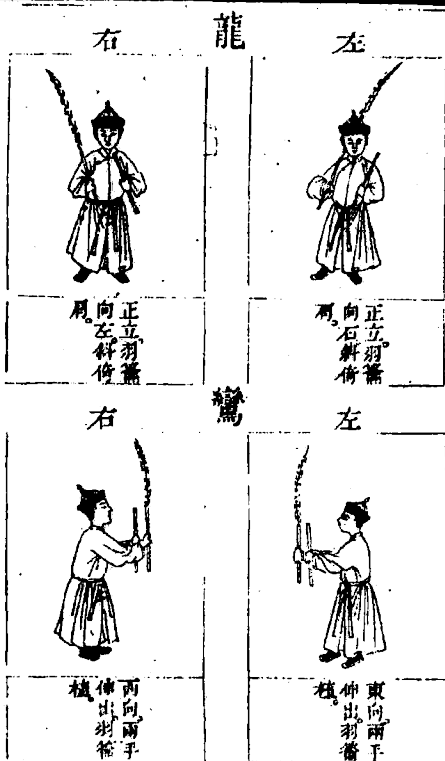 龍
左
正立羽籥
向右斜倚
肩。
右
正立羽籥
向左。斜倚
肩。
鸞
左
東向。兩手
伸出。羽籥
植。
右
西向。兩手
伸出。羽籥
植。